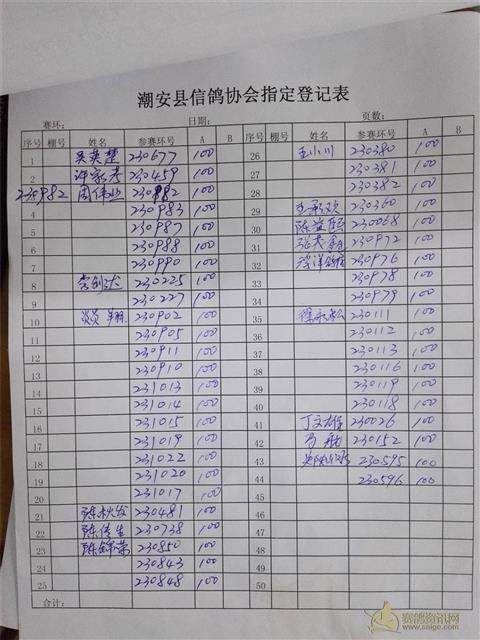 潮安县信鸽协会指定登记表
赛环： 日期： 页数：
序号 棚号 姓名 参赛环号 A B 序号 棚号 姓名 参赛环号 A B
1 吴英楚 230677 100 26 王小川 230380 100
2 许家孝 230459 100 27 230381 100
230982 周伟业 230982 100 28 230382 100
4 230983 100 29 230360 100
5 230987 100 30 陈益熙 230068 100
6 230988 100 31 230972 100
7 230990 100 32 230976 100
8 230225 100 33 230978 100
9 230227 100 34 230979 100
10 230902 100 35 230111 100
11 230905 100 36 230112 100
12 230911 100 37 230113 100
13 230910 100 38 230116 100
14 231013 100 39 230119 100
15 231014 100 40 230118 100
16 231015 100 41 丁文雄 230026 100
17 231019 100 42 230152 100
18 231022 100 43 230595 100
19 231020 100 44 230596 100
20 231017 100 45
21 陈秋发 230481 100 46
22 陈传生 230738 100 47
23 陈锦荣 230850 100 48
24 230843 100 49
25 230848 100 50
合计：
赛鸽资讯网
www.saige.com